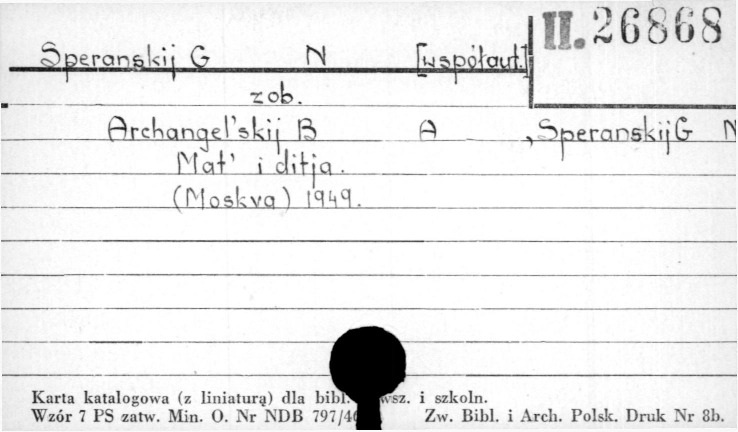 II. 26868
Speranskij G N [współaut.]
zob.
Archangel'skij B A , Speranskij G N
Mat' i ditja.
(Moskva) 1949.
Karta katalogowa (z liniaturą) dla bibl. wsz. i szkoln.
Wzór 7 PS zatw. Min. O. Nr NDB 797/4 Zw. Bibl. i Arch. Polsk. Druk Nr 8b.